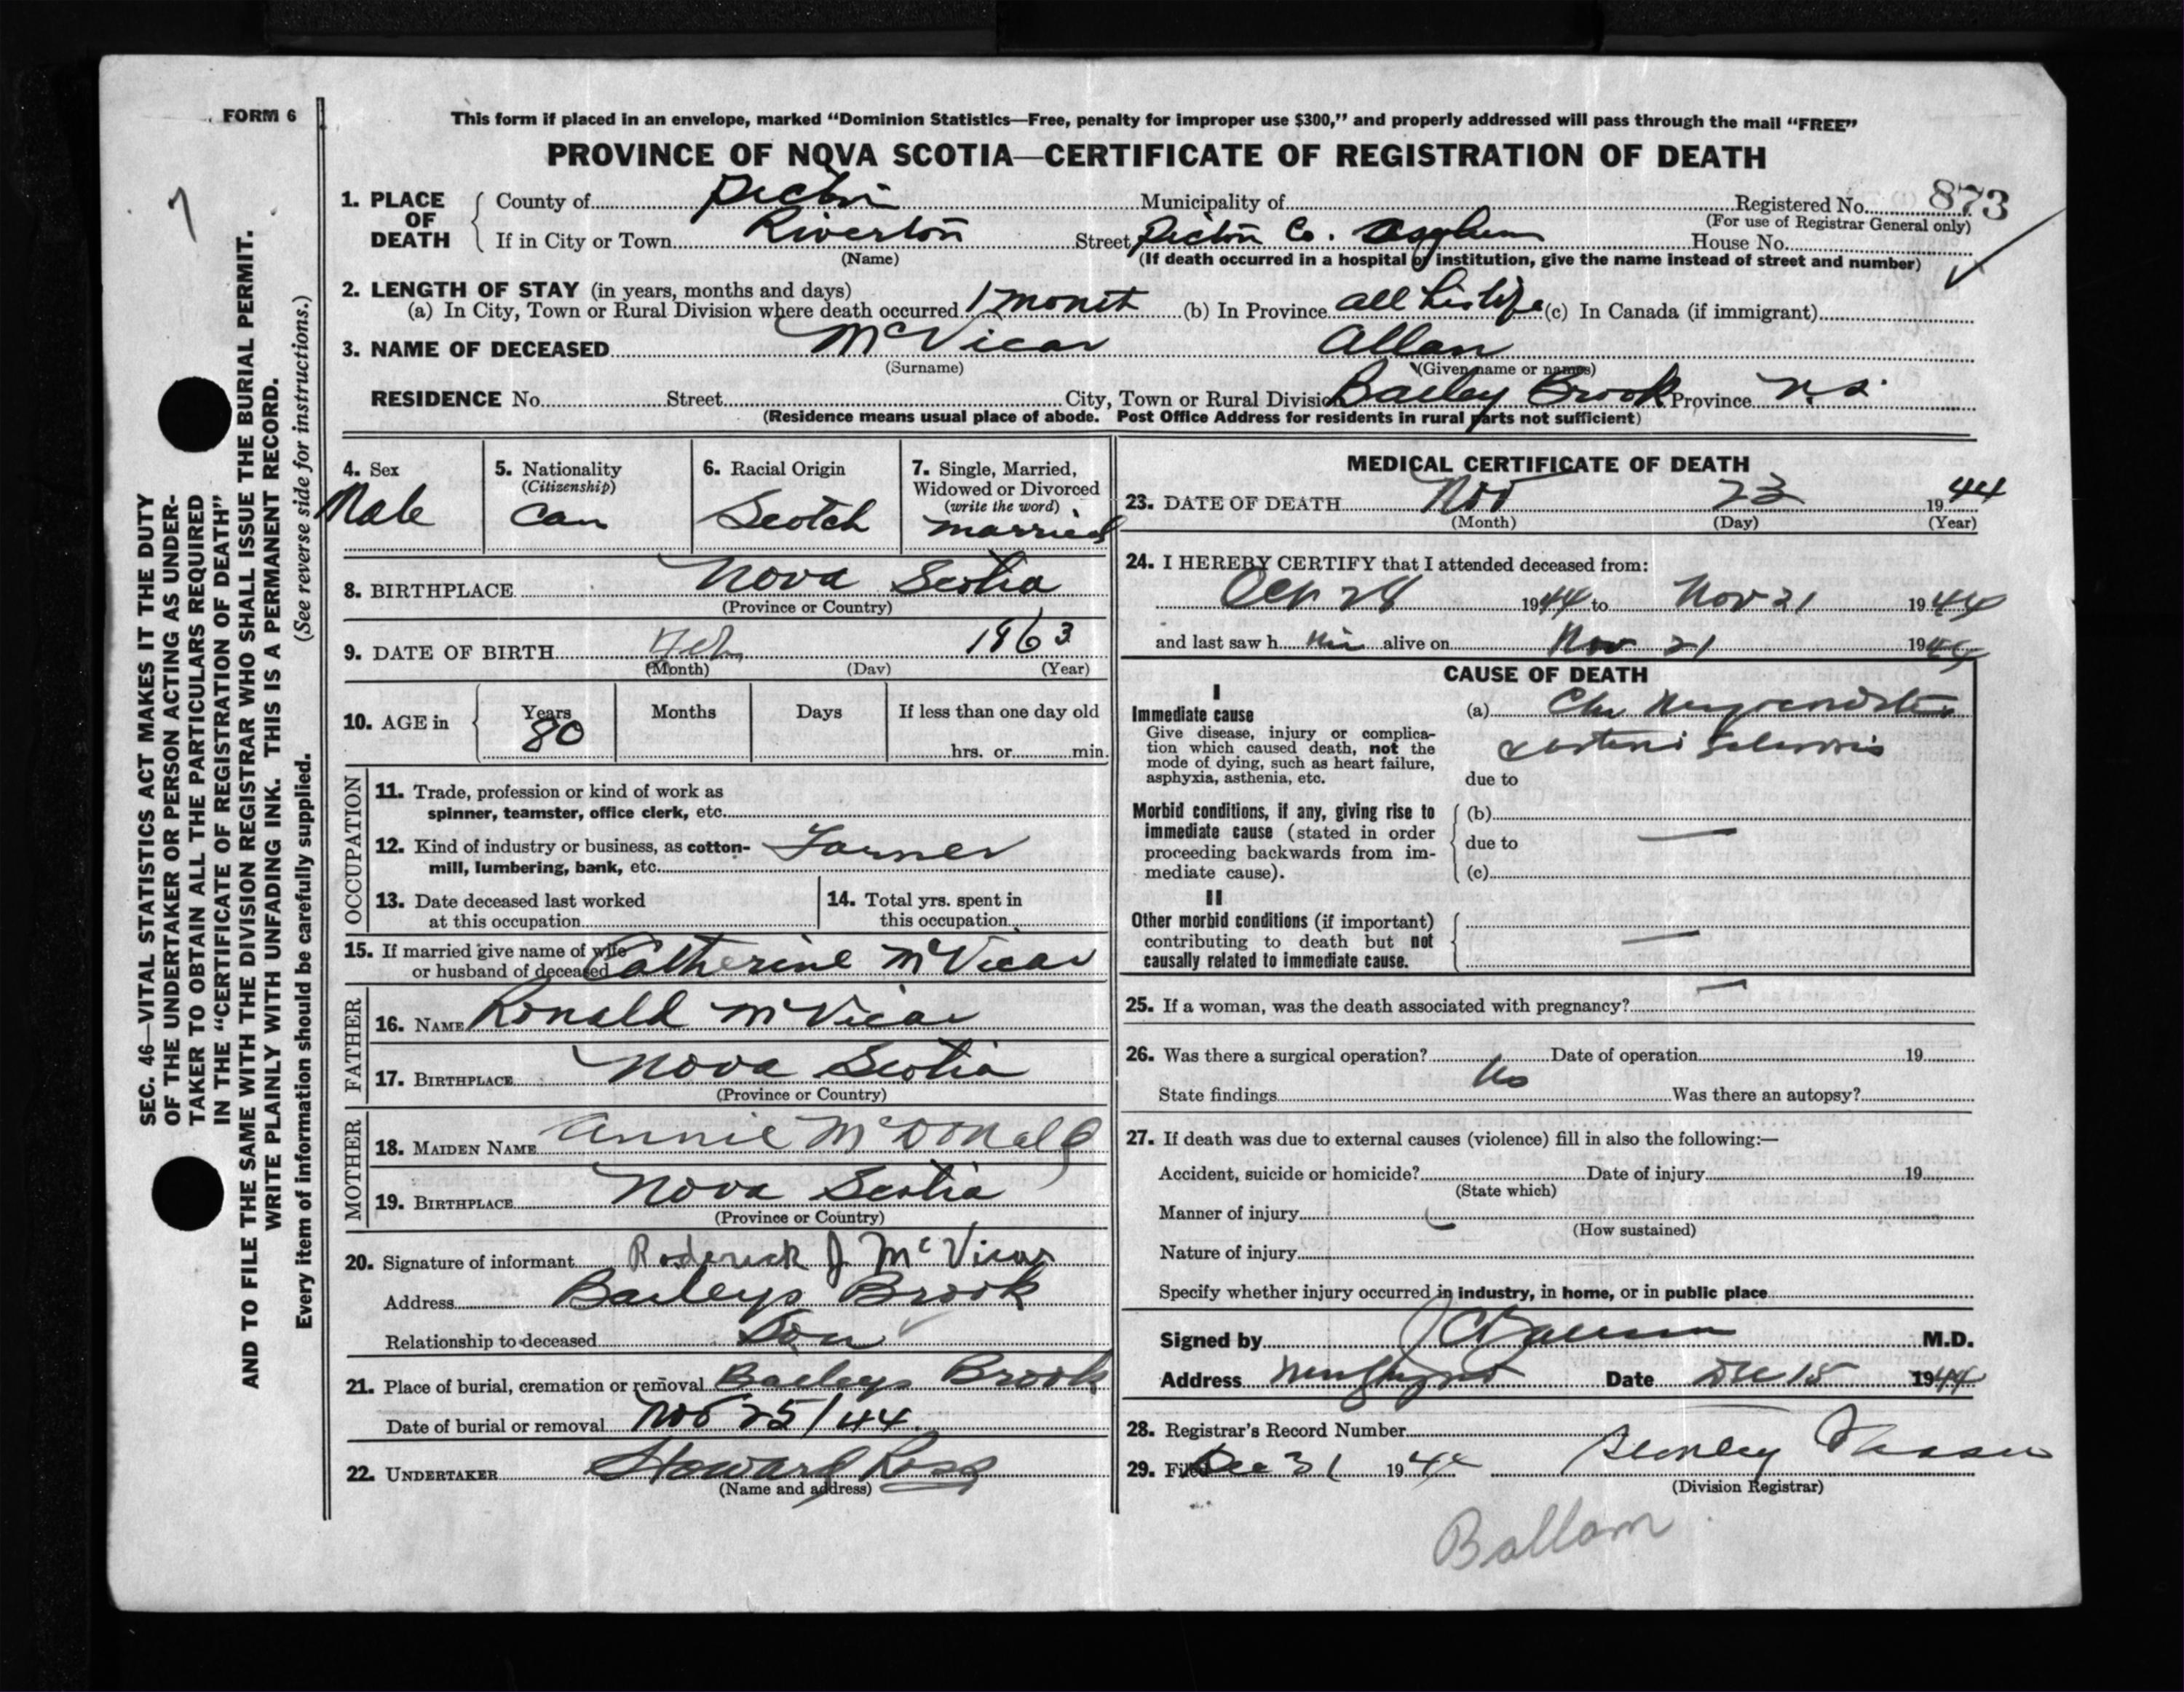 FORM 6
This form if placed in an envelope, marked “Dominion Statistics—Free, penalty for improper use $300,” and properly addressed will pass through the mail “FREE”
PROVINCE OF NOVA SCOTIA—CERTIFICATE OF REGISTRATION OF DEATH
1. PLACE OF DEATH
County of Pictou Municipality of Registered No. 873
(For use of Registrar General only)
If in City or Town Riverton Street Pictou Co. Asylum House No.
(Name) (If death occurred in a hospital or institution, give the name instead of street and number)
2. LENGTH OF STAY (in years, months and days)
(a) In City, Town or Rural Division where death occurred 1 month (b) In Province all his life (c) In Canada (if immigrant)
3. NAME OF DECEASED McVicar Allan
(Surname) (Given name or names)
RESIDENCE No. Street City, Town or Rural Division Bailey Brook Province N.S.
(Residence means usual place of abode. Post Office Address for residents in rural parts not sufficient)
4. Sex
Male
5. Nationality
(Citizenship)
Can
6. Racial Origin
Scotch
7. Single, Married,
Widowed or Divorced
(write the word)
married
8. BIRTHPLACE Nova Scotia
(Province or Country)
9. DATE OF BIRTH Feb 1863
(Month) (Day) (Year)
10. AGE in
Years Months Days If less than one day old
80 hrs. or min.
OCCUPATION
11. Trade, profession or kind of work as
spinner, teamster, office clerk, etc.
12. Kind of industry or business, as cotton-
mill, lumbering, bank, etc. Farmer
13. Date deceased last worked
at this occupation
14. Total yrs. spent in
this occupation
15. If married give name of wife
or husband of deceased Catherine McVicar
FATHER
16. NAME Ronald McVicar
17. BIRTHPLACE Nova Scotia
(Province or Country)
MOTHER
18. MAIDEN NAME Annie McDonald
19. BIRTHPLACE Nova Scotia
(Province or Country)
20. Signature of informant Roderick J McVicar
Address Baileys Brook
Relationship to deceased Son
21. Place of burial, cremation or removal Baileys Brook
Date of burial or removal Nov 25/44
22. UNDERTAKER Howard Ross
(Name and address)
MEDICAL CERTIFICATE OF DEATH
23. DATE OF DEATH Nov 23 1944
(Month) (Day) (Year)
24. I HEREBY CERTIFY that I attended deceased from:
Oct 28 1944 to Nov 21 1944
and last saw h him alive on Nov 21 1944
CAUSE OF DEATH
I
Immediate cause
Give disease, injury or complica-
tion which caused death, not the
mode of dying, such as heart failure,
asphyxia, asthenia, etc.
(a) Chr
due to
Morbid conditions, if any, giving rise to
immediate cause (stated in order
proceeding backwards from im-
mediate cause).
(b) —
due to
(c)
II
Other morbid conditions (if important)
contributing to death but not
causally related to immediate cause. —
25. If a woman, was the death associated with pregnancy? —
26. Was there a surgical operation? No Date of operation 19
State findings Was there an autopsy?
27. If death was due to external causes (violence) fill in also the following:—
Accident, suicide or homicide? Date of injury 19
(State which)
Manner of injury
(How sustained)
Nature of injury
Specify whether injury occurred in industry, in home, or in public place
Signed by M.D.
Address Date Dec 15 1944
28. Registrar's Record Number
29. Filed Dec 31 1944 Stanley Fraser
(Division Registrar)
Ballam
SEC. 46—VITAL STATISTICS ACT MAKES IT THE DUTY
OF THE UNDERTAKER OR PERSON ACTING AS UNDER-
TAKER TO OBTAIN ALL THE PARTICULARS REQUIRED
IN THE “CERTIFICATE OF REGISTRATION OF DEATH”
AND TO FILE THE SAME WITH THE DIVISION REGISTRAR WHO SHALL ISSUE THE BURIAL PERMIT.
WRITE PLAINLY WITH UNFADING INK. THIS IS A PERMANENT RECORD.
Every item of information should be carefully supplied. (See reverse side for instructions.)